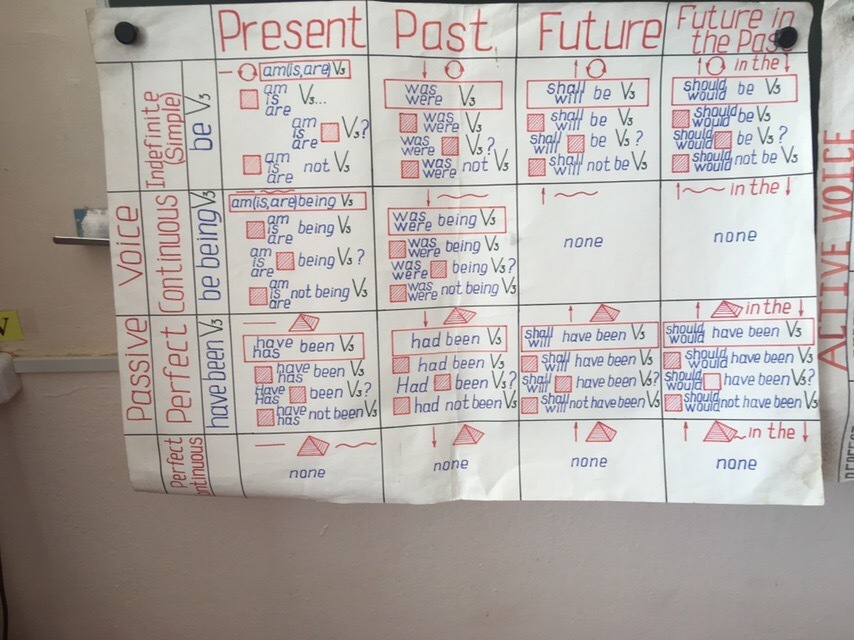 Present Past Future Future in
the Past
Passive Voice
Indefinite
(Simple)
be V₃
am(is, are) V₃
am
is
are V₃...
am
is
are V₃?
am
is
are not V₃
was
were V₃
was
were V₃
was
were V₃?
was
were not V₃
shall
will be V₃
shall
will be V₃
shall
will be V₃?
shall
will not be V₃
in the
should
would be V₃
should
would be V₃
should
would be V₃?
should
would not be V₃
Continuous
be being V₃
am(is, are) being V₃
am
is
are being V₃
am
is
are being V₃?
am
is
are not being V₃
was
were being V₃
was
were being V₃
was
were being V₃?
was
were not being V₃
none
in the
none
Perfect
have been V₃
have
has been V₃
have
has been V₃
Have
Has been V₃?
have
has not been V₃
had been V₃
had been V₃
Had been V₃?
had not been V₃
shall
will have been V₃
shall
will have been V₃
shall
will have been V₃?
shall
will not have been V₃
in the
should
would have been V₃
should
would have been V₃
should
would have been V₃?
should
would not have been V₃
Perfect
ntinuous
none
none
none
in the
none
ACTIVE VOICE